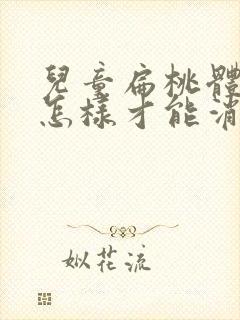 兒童扁桃體
怎樣才能消
姒花流